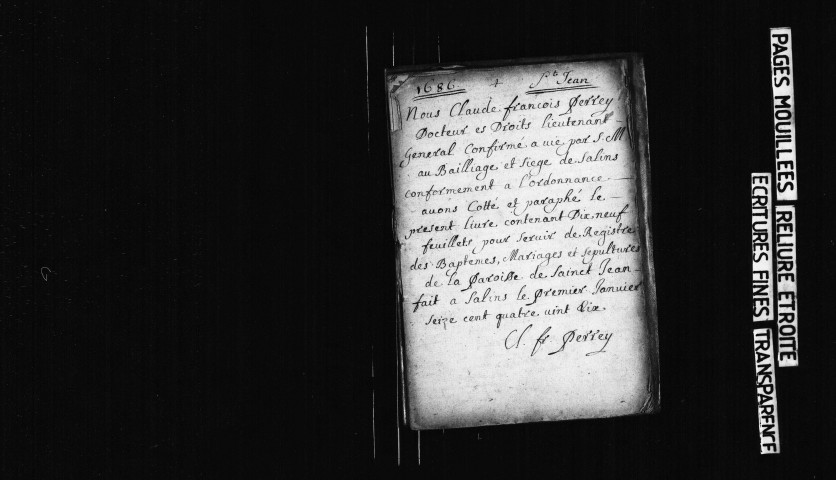 1686 + St Jean
Nous Claude françois Perrey
Docteur es Droits lieutenant
General Confirmé a vie par S. M
au Bailliage et Siege de Salins
conformement a l'ordonnance
avons Cotté et paraphé le
present livre contenant Dix neuf
feuillets pour servir de Registre
des Baptemes, Mariages et sepultures
de la Paroisse de Sainct Jean
fait a Salins le Premier Janvier
seize cent quatre vint Dix.
Cl. fr Perrey
PAGES MOUILLEES RELIURE ETROITE
ECRITURES FINES TRANSPARENCE